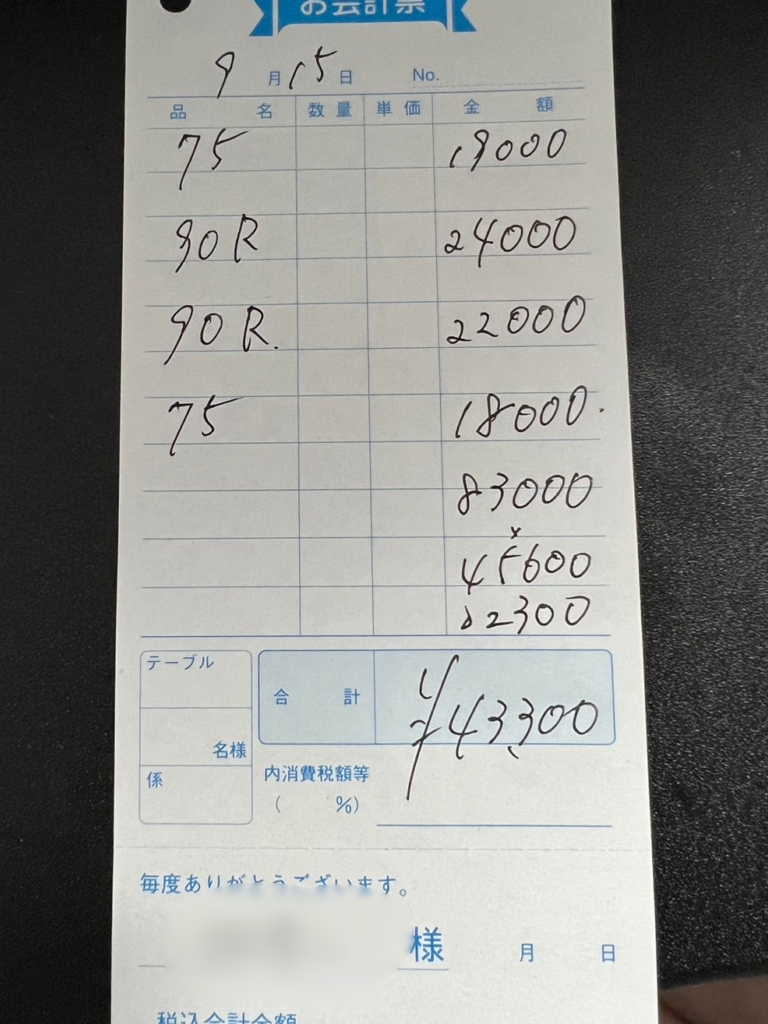 お会計票
9月15日 No.
品名 数量 単価 金額
75 19000
90R 24000
90R. 22000
75 18000.
83000
x
45600
2300
テーブル
合計 ¥43,300
名様
係 内消費税額等
( %)
毎度ありがとうございます。
様 月 日
税込合計金額